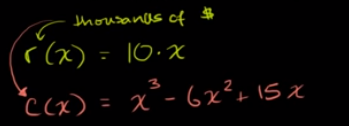 thousands of $
r(x) = 10·x
c(x) = x³ - 6x² + 15x